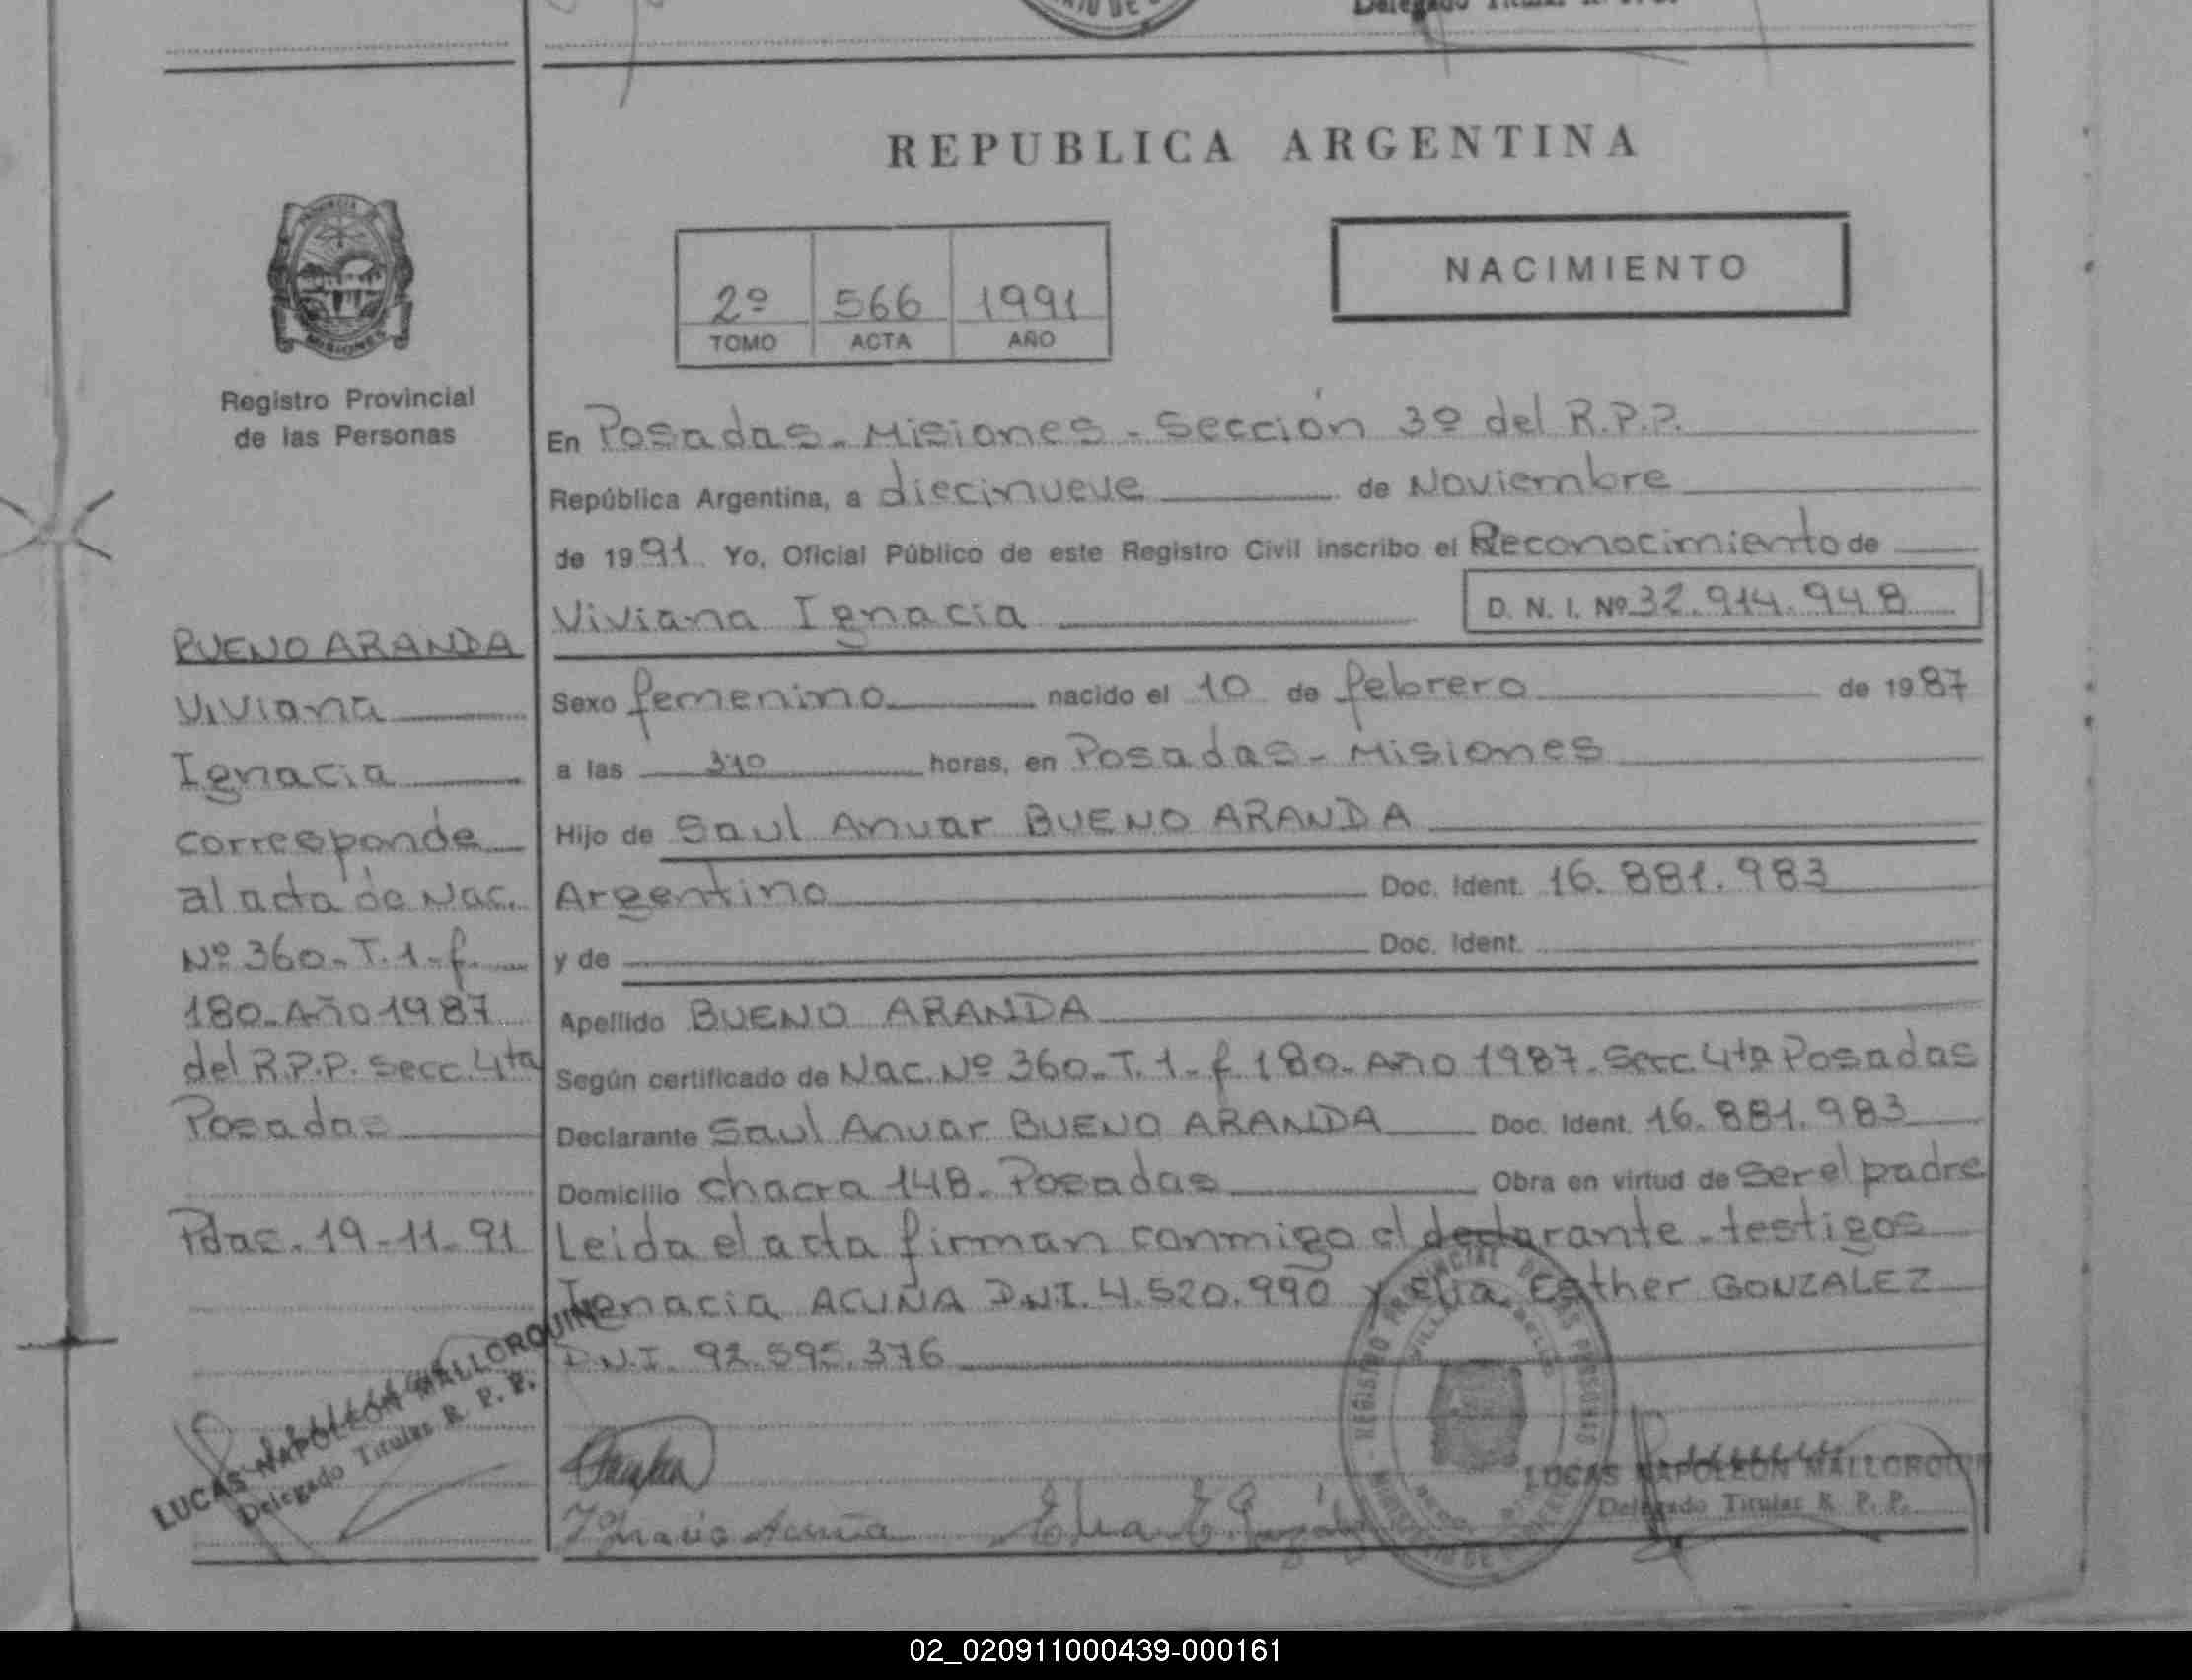 Delegado Titular R. P. P.
REPUBLICA ARGENTINA
2º 566 1991
TOMO ACTA AÑO
NACIMIENTO
PROVINCIA DE
MISIONES
Registro Provincial
de las Personas
BUENO ARANDA
Viviana
Ignacia
corresponde
al acta de Nac.
Nº 360-T.1-f.
180-Año 1987
del R.P.P. Secc. 4ta
Posadas
Pdas. 19-11-91
LUCAS NAPOLEON MALLORQUIN
Delegado Titular R. P. P.
En Posadas-Misiones-Sección 3º del R.P.P.
República Argentina, a diecinueve de Noviembre
de 1991 Yo, Oficial Público de este Registro Civil inscribo el Reconocimiento de
Viviana Ignacia D. N. I. Nº 32.914.948
Sexo femenino nacido el 10 de febrero de 1987
a las 3:10 horas, en Posadas-Misiones
Hijo de Saul Anuar BUENO ARANDA
Argentino Doc. Ident. 16.881.983
y de Doc. Ident.
Apellido BUENO ARANDA
Según certificado de Nac. Nº 360-T.1-f 180-Año 1987-Secc. 4ta Posadas
Declarante Saul Anuar BUENO ARANDA Doc. Ident. 16.881.983
Domicilio chacra 148-Posadas Obra en virtud de ser el padre
Leida el acta firman conmigo el declarante-testigos
Ignacia ACUÑA D.N.I. 4.520.990 y Elia Esther GONZALEZ
D.N.I. 92.595.376
Ignacia Acuña Elia E. González
LUCAS NAPOLEON MALLORQUIN
Delegado Titular R. P. P.
02_020911000439-000161